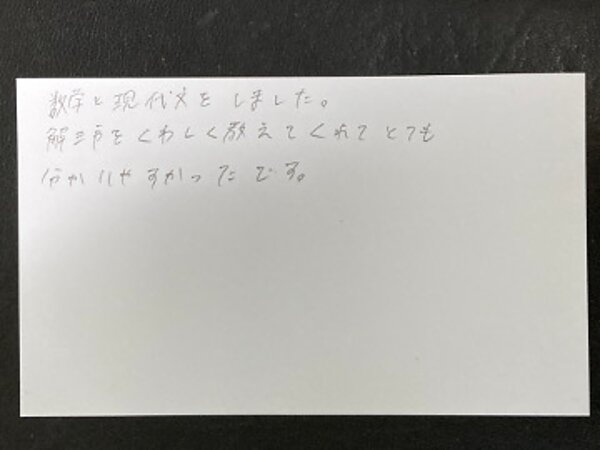 数学と現代文をしました。
解き方をくわしく教えてくれてとても
分かりやすかったです。